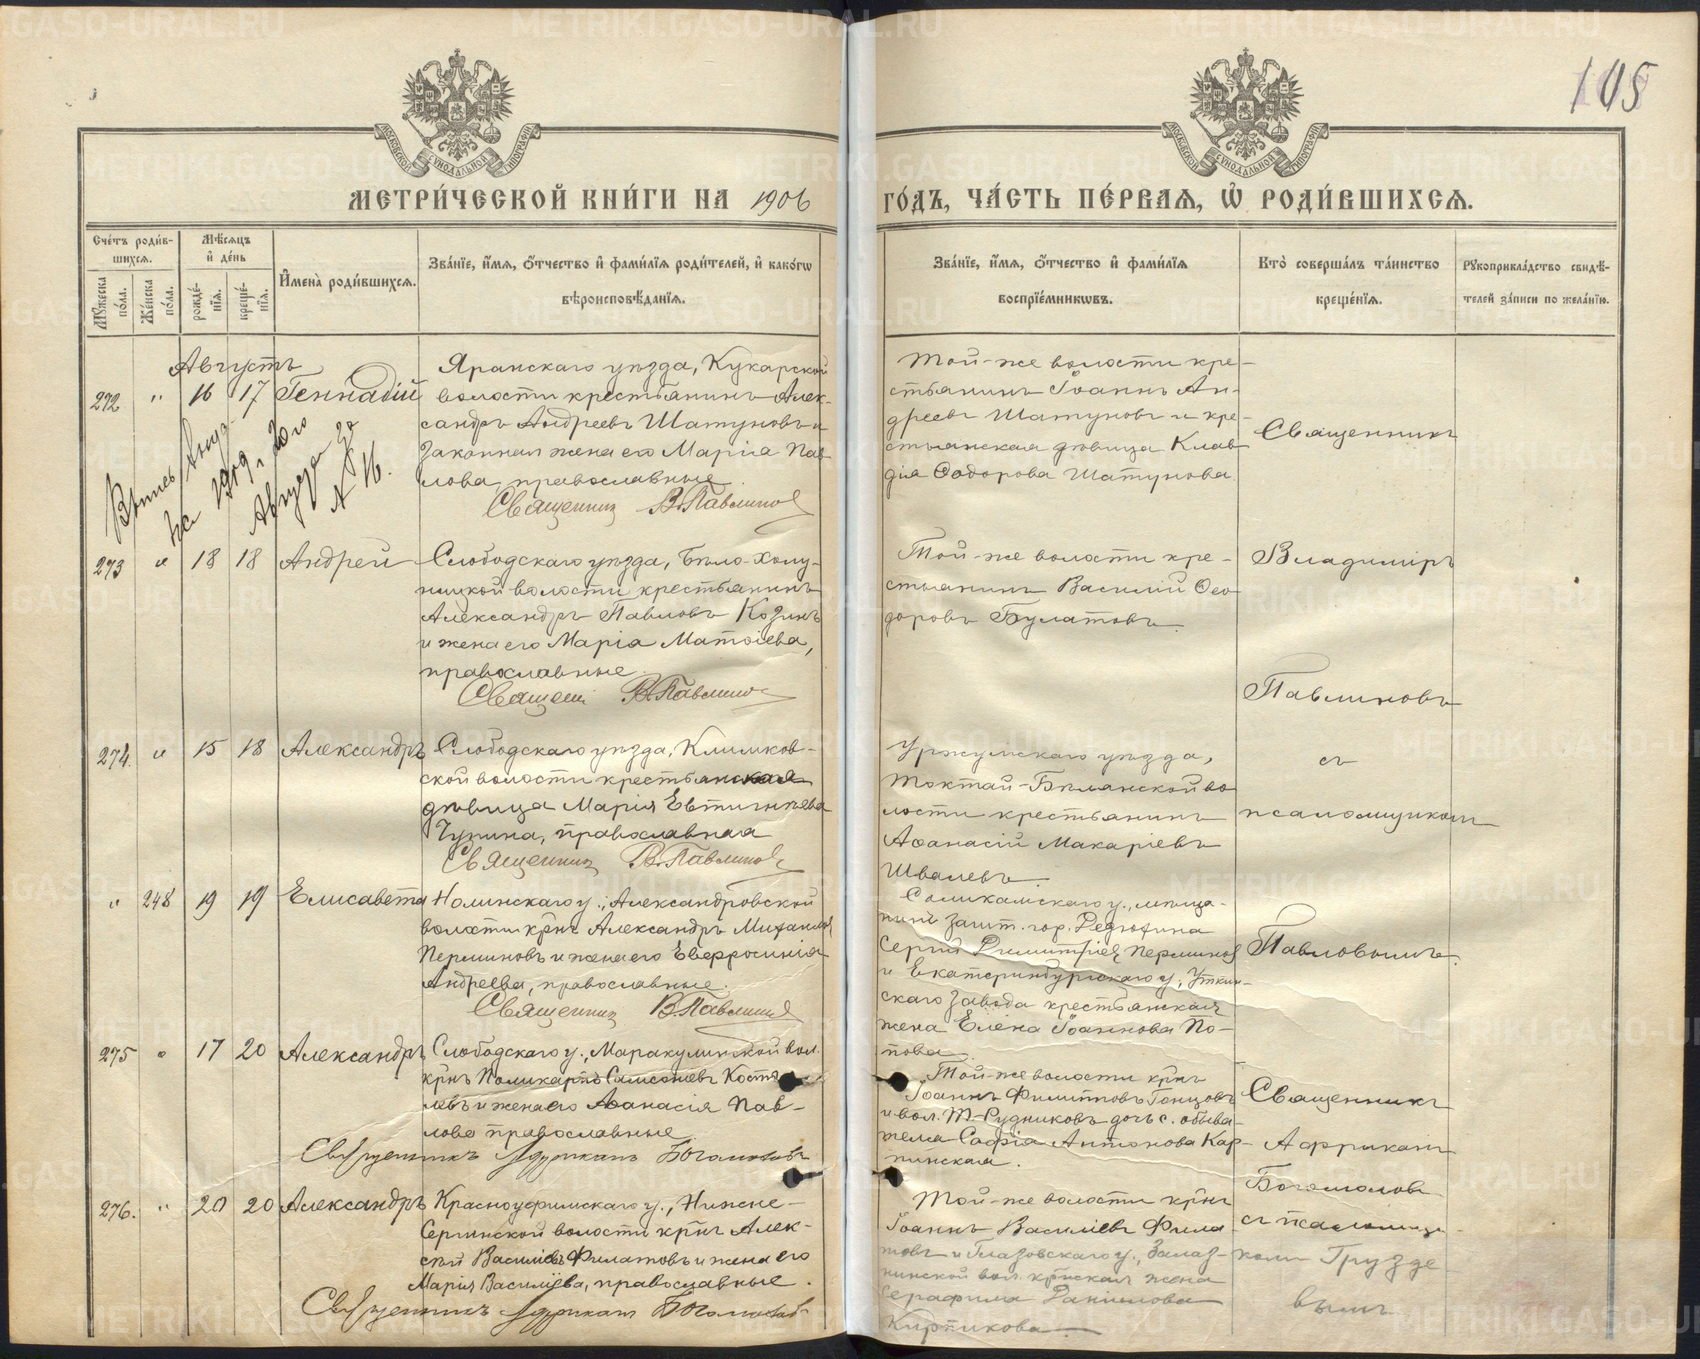 105
МЕТРИ́ЧЕСКОЙ КНИ́ГИ НА 1906 ГО́ДЪ, ЧА́СТЬ ПЕ́РВАѦ, Ѡ҆ РОДИ́ВШИХСѦ.
Сче́тъ роди́в-
шихсѧ.
Мꙋ́жеска по́ла.
Же́нска по́ла.
Мѣ́сѧцъ
и҆ де́нь
рожде́-
нїѧ.
креще́-
нїѧ.
И҆мена̀ роди́вшихсѧ.
Зва́нїе, и҆́мѧ, ѻ҆́тчество и҆ фами́лїѧ роди́телей, и҆ како́гѡ
вѣроисповѣ́данїѧ.
Зва́нїе, и҆́мѧ, ѻ҆́тчество и҆ фами́лїѧ
воспрїе́мникѡвъ.
Кто̀ соверша́лъ та́инство
креще́нїѧ.
Рꙋкоприкла́дство свидѣ́-
телей за́писи по жела́нїю.
Августъ
272 " 16 17 Геннадій
Яранскаго уѣзда, Кукарской
волости крестьянинъ Алек-
сандръ Андреевъ Шатуновъ и
законная жена его Марія Пав-
лова, православные
Священник В. Павлинов
Той-же волости кре-
стьянинъ Іоаннъ Ан-
дреевъ Шатуновъ и кре-
стьянская дѣвица Клав-
дія Ѳодорова Шатунова.
Августа
№ 16.
273 " 18 18 Андрей
Слободскаго уѣзда, Бѣло-Холу-
ницкой волости крестьянинъ
Александръ Павловъ Козинъ
и жена его Марія Матѳіева,
православные.
Священ В. Павлинов
Той-же волости кре-
стьянинъ Василій Ѳео-
доровъ Булатовъ.
274. " 15 18 Александръ
Слободскаго уѣзда, Климков-
ской волости крестьянская
дѣвица Марія Евтигнѣева
Чупина, православная
Священник В. Павлинов
Уржумскаго уѣзда,
Токтай-Бѣлякской во
лости крестьянинъ
Аѳанасій Макаріевъ
Швалевъ.
" 248 19 19 Елисавета
Нолинскаго у., Александровской
волости крнъ Александръ Михаилов
Перминовъ и жена его Евфросинія
Андреева, православные.
Священник В. Павлинов
Соликамскаго у., мѣща-
нинъ зашт. гор. Дедюхина
Сергій Димитріев Перминов
и Екатеринбургскаго у., Уткин-
скаго завода крестьянская
жена Елена Іоаннова По-
пова.
275 " 17 20 Александръ
Слободскаго у., Маракулинской вол.
крнъ Поликарпъ Самсоновъ Косты
левъ и жена его Аѳанасія Пав-
лова православные
Священникъ Африканъ Богомоловъ
Той-же волости крнъ
Іоаннъ Филипповъ Гонцовъ
и вол. Т-Рудниковъ дочь с. обыва-
теля Софія Антонова Кар-
пинская.
276. " 20 20 Александръ
Красноуфимскаго у., Нижне-
Сергинской волости крнъ Алек-
сѣй Василіевъ Филатовъ и жена его
Марія Василіева, православные.
Священникъ Африканъ Богомолов
Той-же волости крнъ
Іоаннъ Василіевъ Фила-
товъ и Глазовскаго у., Залаз-
нинской вол. крнская жена
Серафима Даніилова
Кирпикова.
Священникъ
Владимиръ
Павлиновъ
съ
псаломщикомъ
Павловымъ.
Священникъ
Африканъ
Богомолов
съ псаломщи-
комъ Грузде-
вымъ